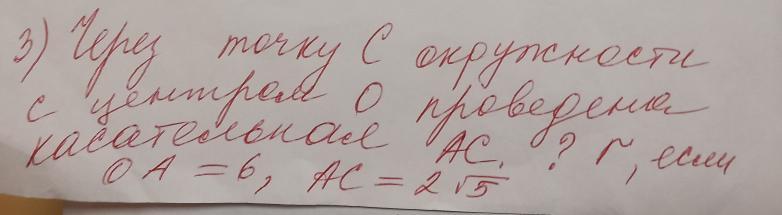 3) Через точку С окружности
с центром О проведена
касательная АС. ? r, если
ОА = 6, АС = 2√5